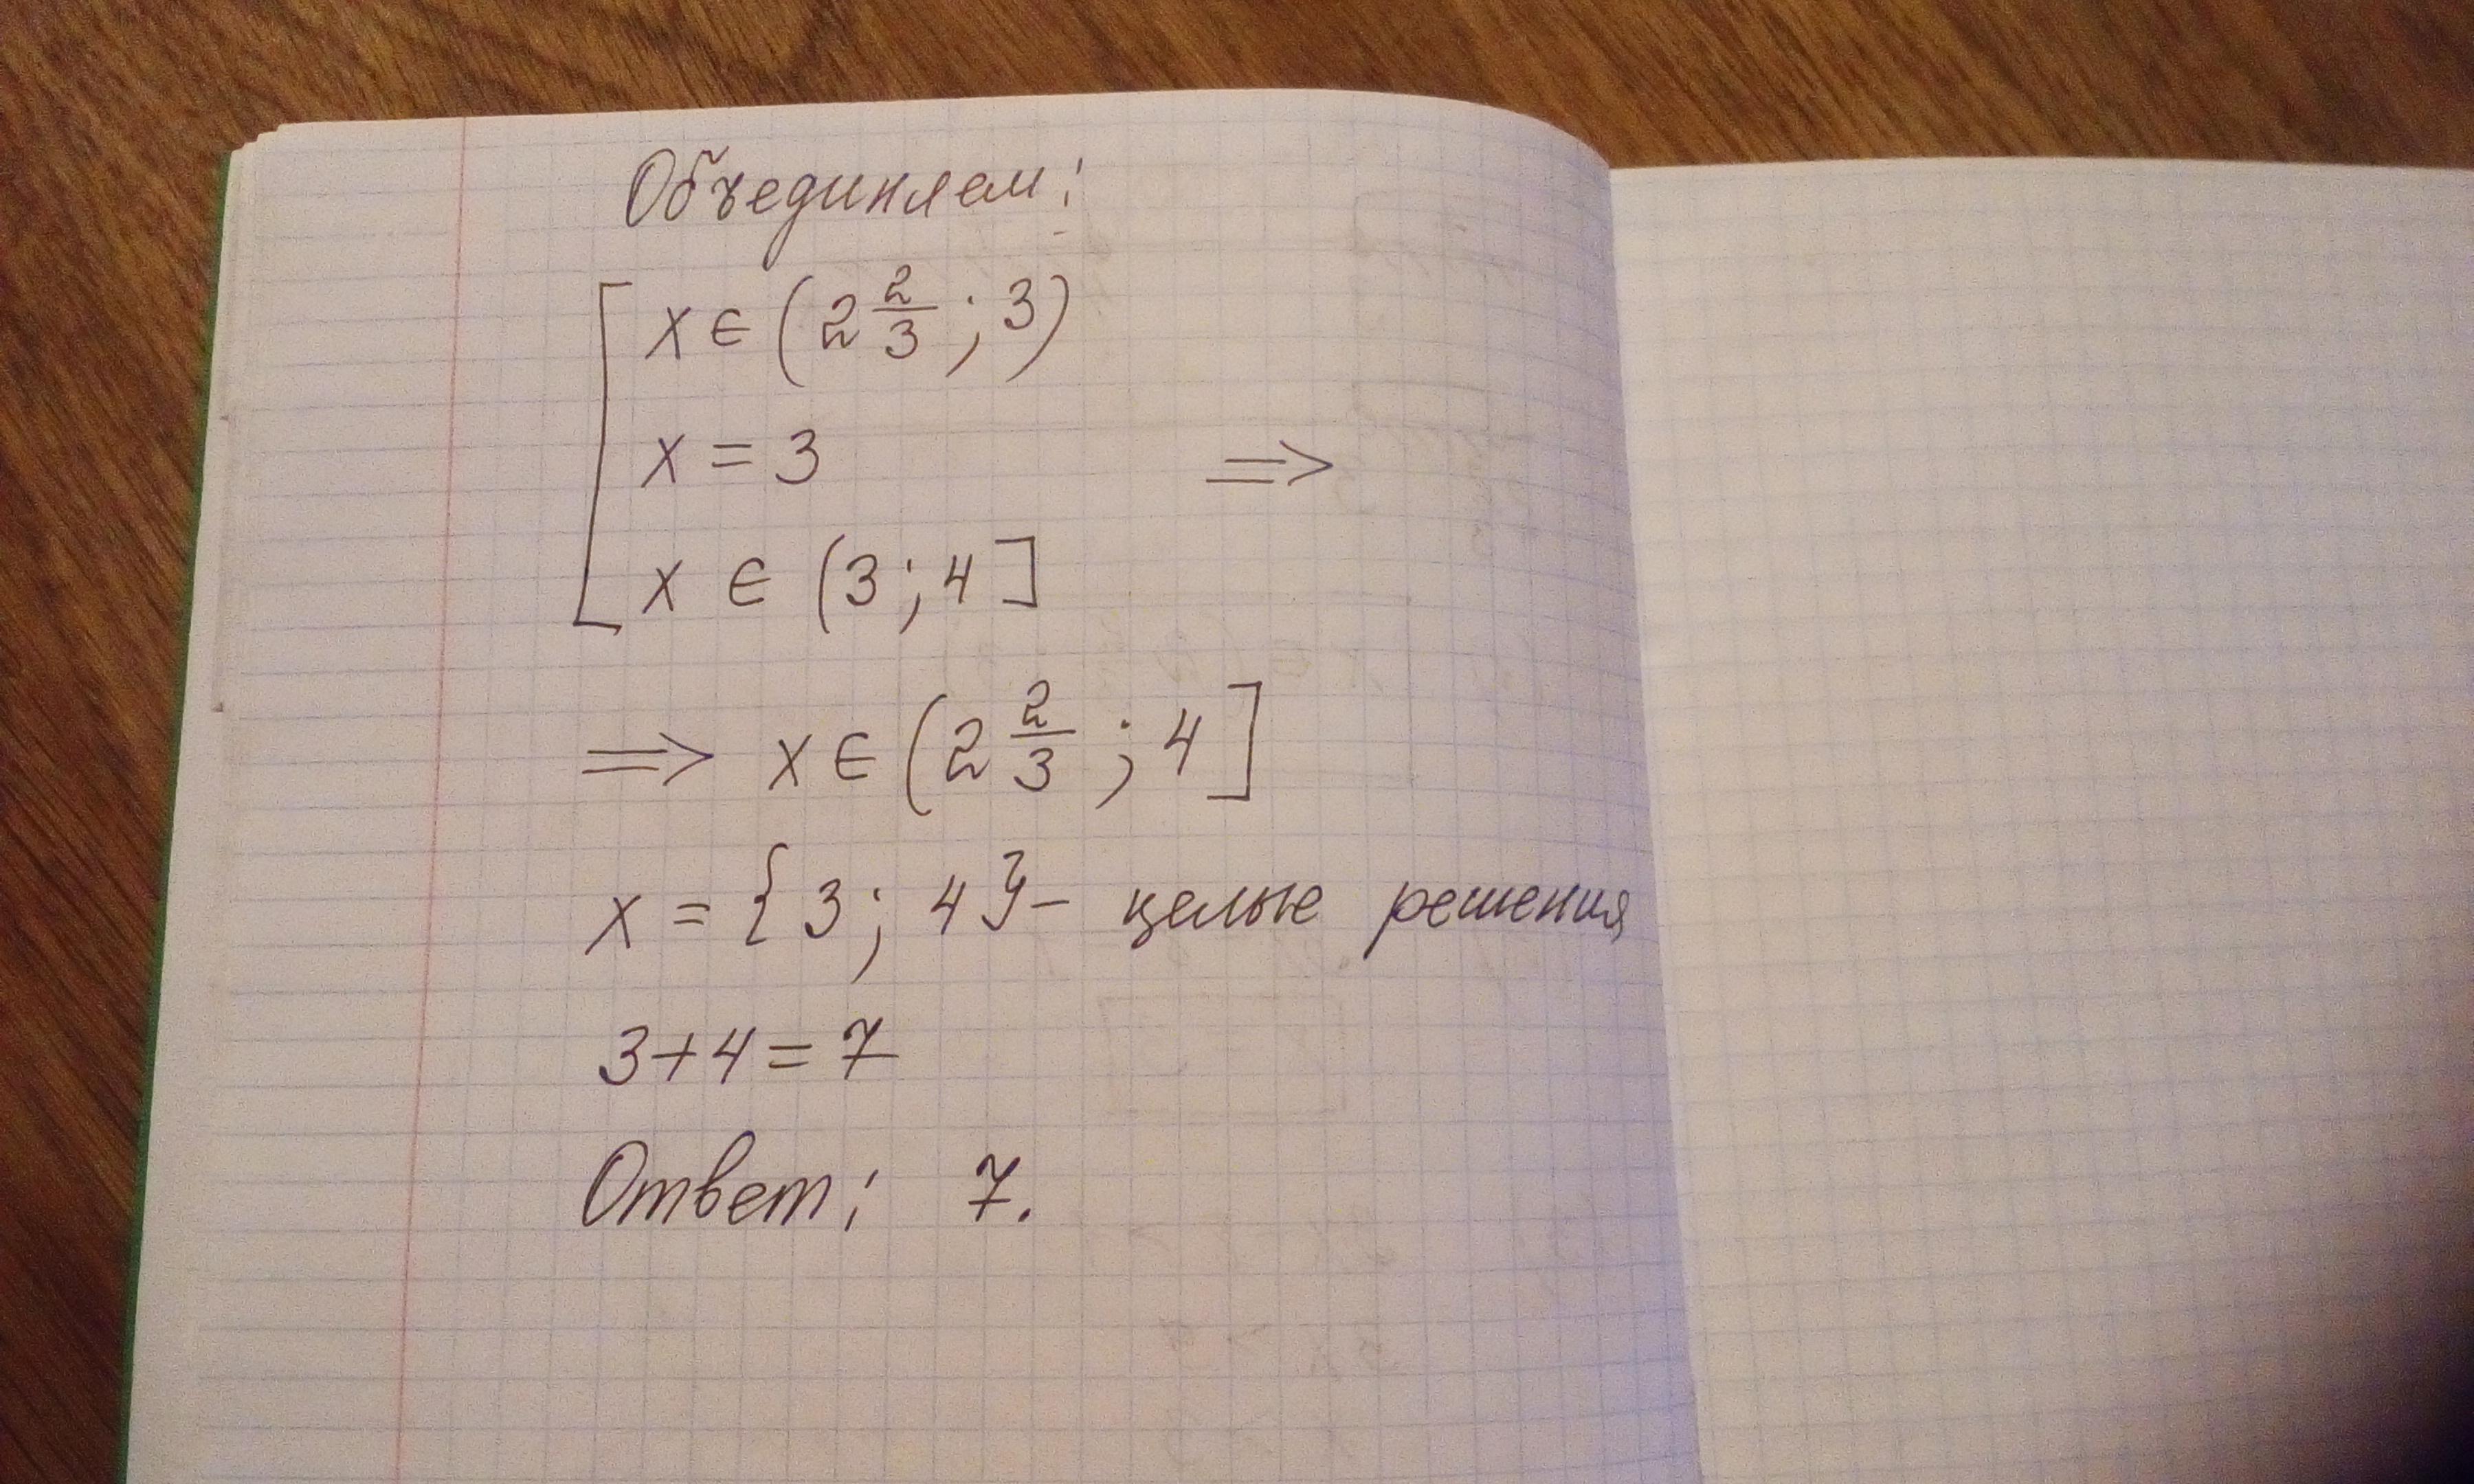 Объединяем:
[ x ∈ (2 2/3 ; 3)
x = 3 ⇒
x ∈ (3 ; 4]
⇒ x ∈ (2 2/3 ; 4]
x = {3 ; 4} - целые решения
3+4=7
Ответ: 7.